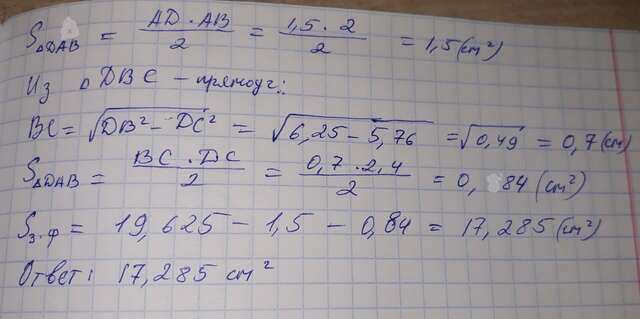 S△DAB = AD · AB / 2 = 1,5 · 2 / 2 = 1,5 (cm²)
Из △ DBC – прямоуг.:
BC = √DB² – DC² = √6,25 – 5,76 = √0,49 = 0,7 (cm)
S△DAB = BC · DC / 2 = 0,7 · 2,4 / 2 = 0,84 (cm²)
Sз.ф = 19,625 – 1,5 – 0,84 = 17,285 (cm²)
Ответ: 17,285 cm²